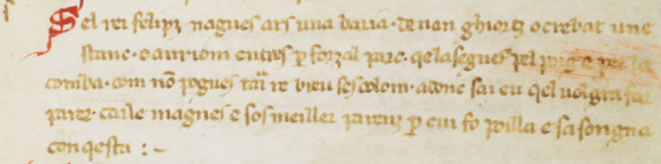 Sel rei felips nagues ars una baria · denan ghiortz o crebat une
stanc · o auriom entres p forzal parc · qelasegues pel puig e per la
comba · com nō pogues traire breu ses colom · adonc sai eu qel volgra far
parer · carle magnes e sos meiller parenz p cui fo poilla e sasongna
conqesta : ~